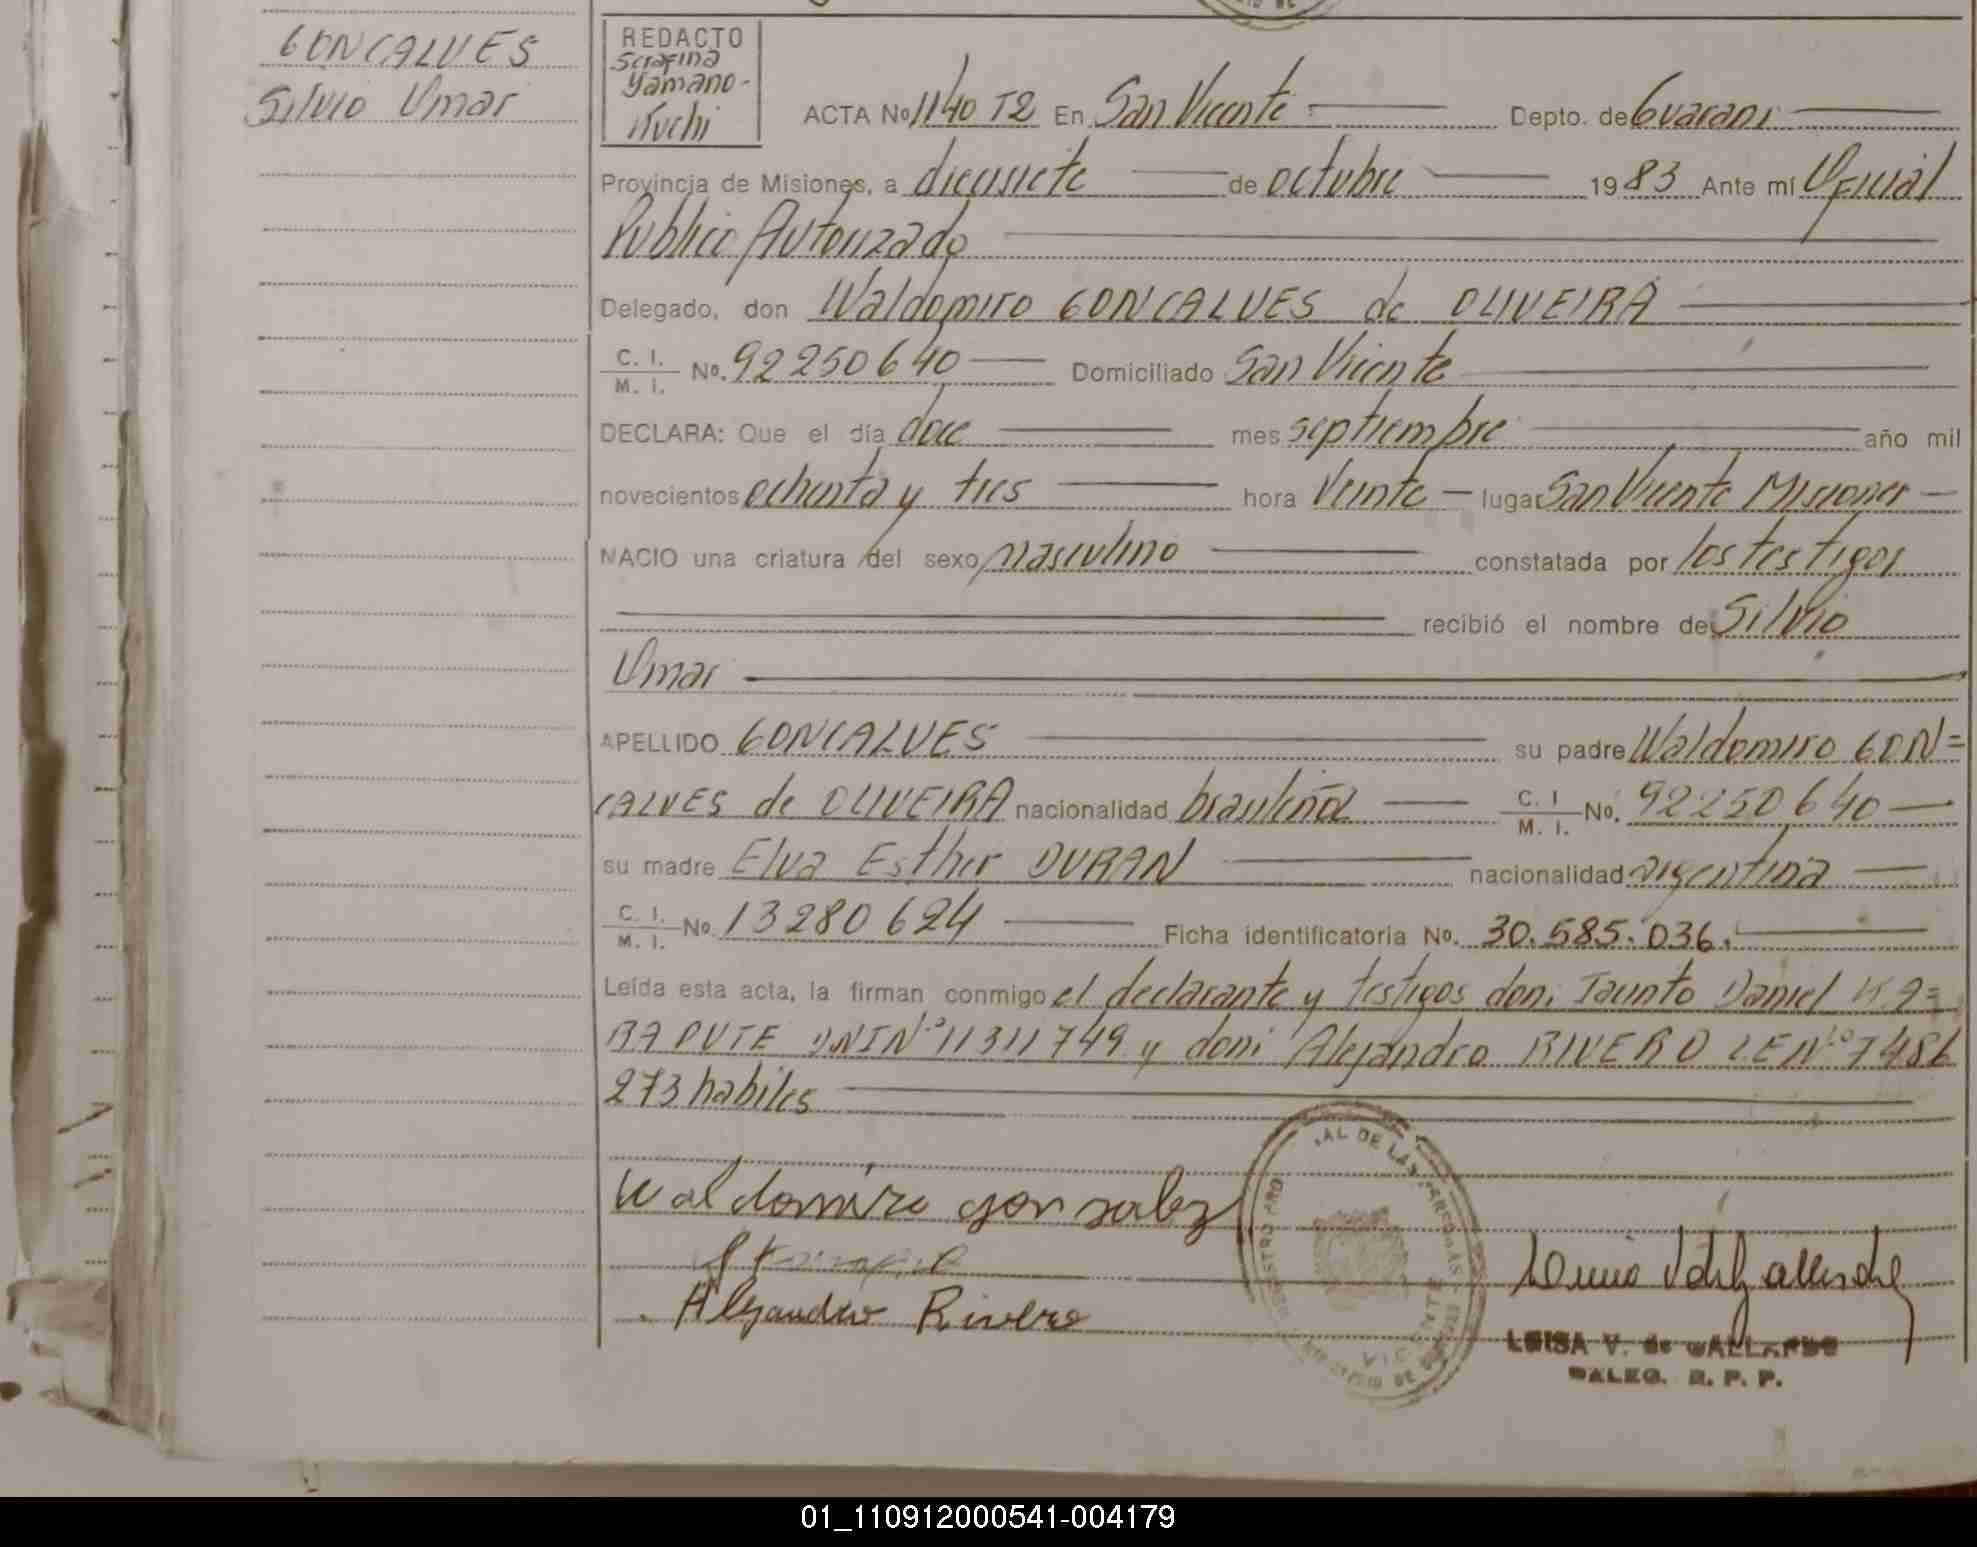 GONCALVES
Silvio Umar
REDACTO
Serafina
Yamano-
Kuchi
ACTA No 1140 T2 En San Vicente Depto. de Guarani
Provincia de Misiones, a diecisiete de octubre 1983 Ante mí Oficial
Publico Autorizado
Delegado, don Waldomiro GONCALVES de OLIVEIRA
C. I. M. I. No. 92250640 Domiciliado San Vicente
DECLARA: Que el día doce mes septiembre año mil
novecientos ochenta y tres hora Veinte lugar San Vicente Misiones
NACIO una criatura del sexo masculino constatada por los testigos
recibió el nombre de Silvio
Umar
APELLIDO GONCALVES su padre Waldomiro GON=
CALVES de OLIVEIRA nacionalidad brasileña C. I M. I. No. 92250640
su madre Elva Esther DURAN nacionalidad argentina
C. I. M. I. No. 13280624 Ficha identificatoria No. 30.585.036.
Leída esta acta, la firman conmigo el declarante y testigos don: Jacinto Daniel
DNI Nº 11311749 y don: Alejandro RIVERO LE Nº 7486
273 habiles
Waldomiro gonzalez
Alejandro Rivero
AL DE LAS
VICENTE
LUISA V. de GALLARDO
DALEG. R. P. P.
01_110912000541-004179